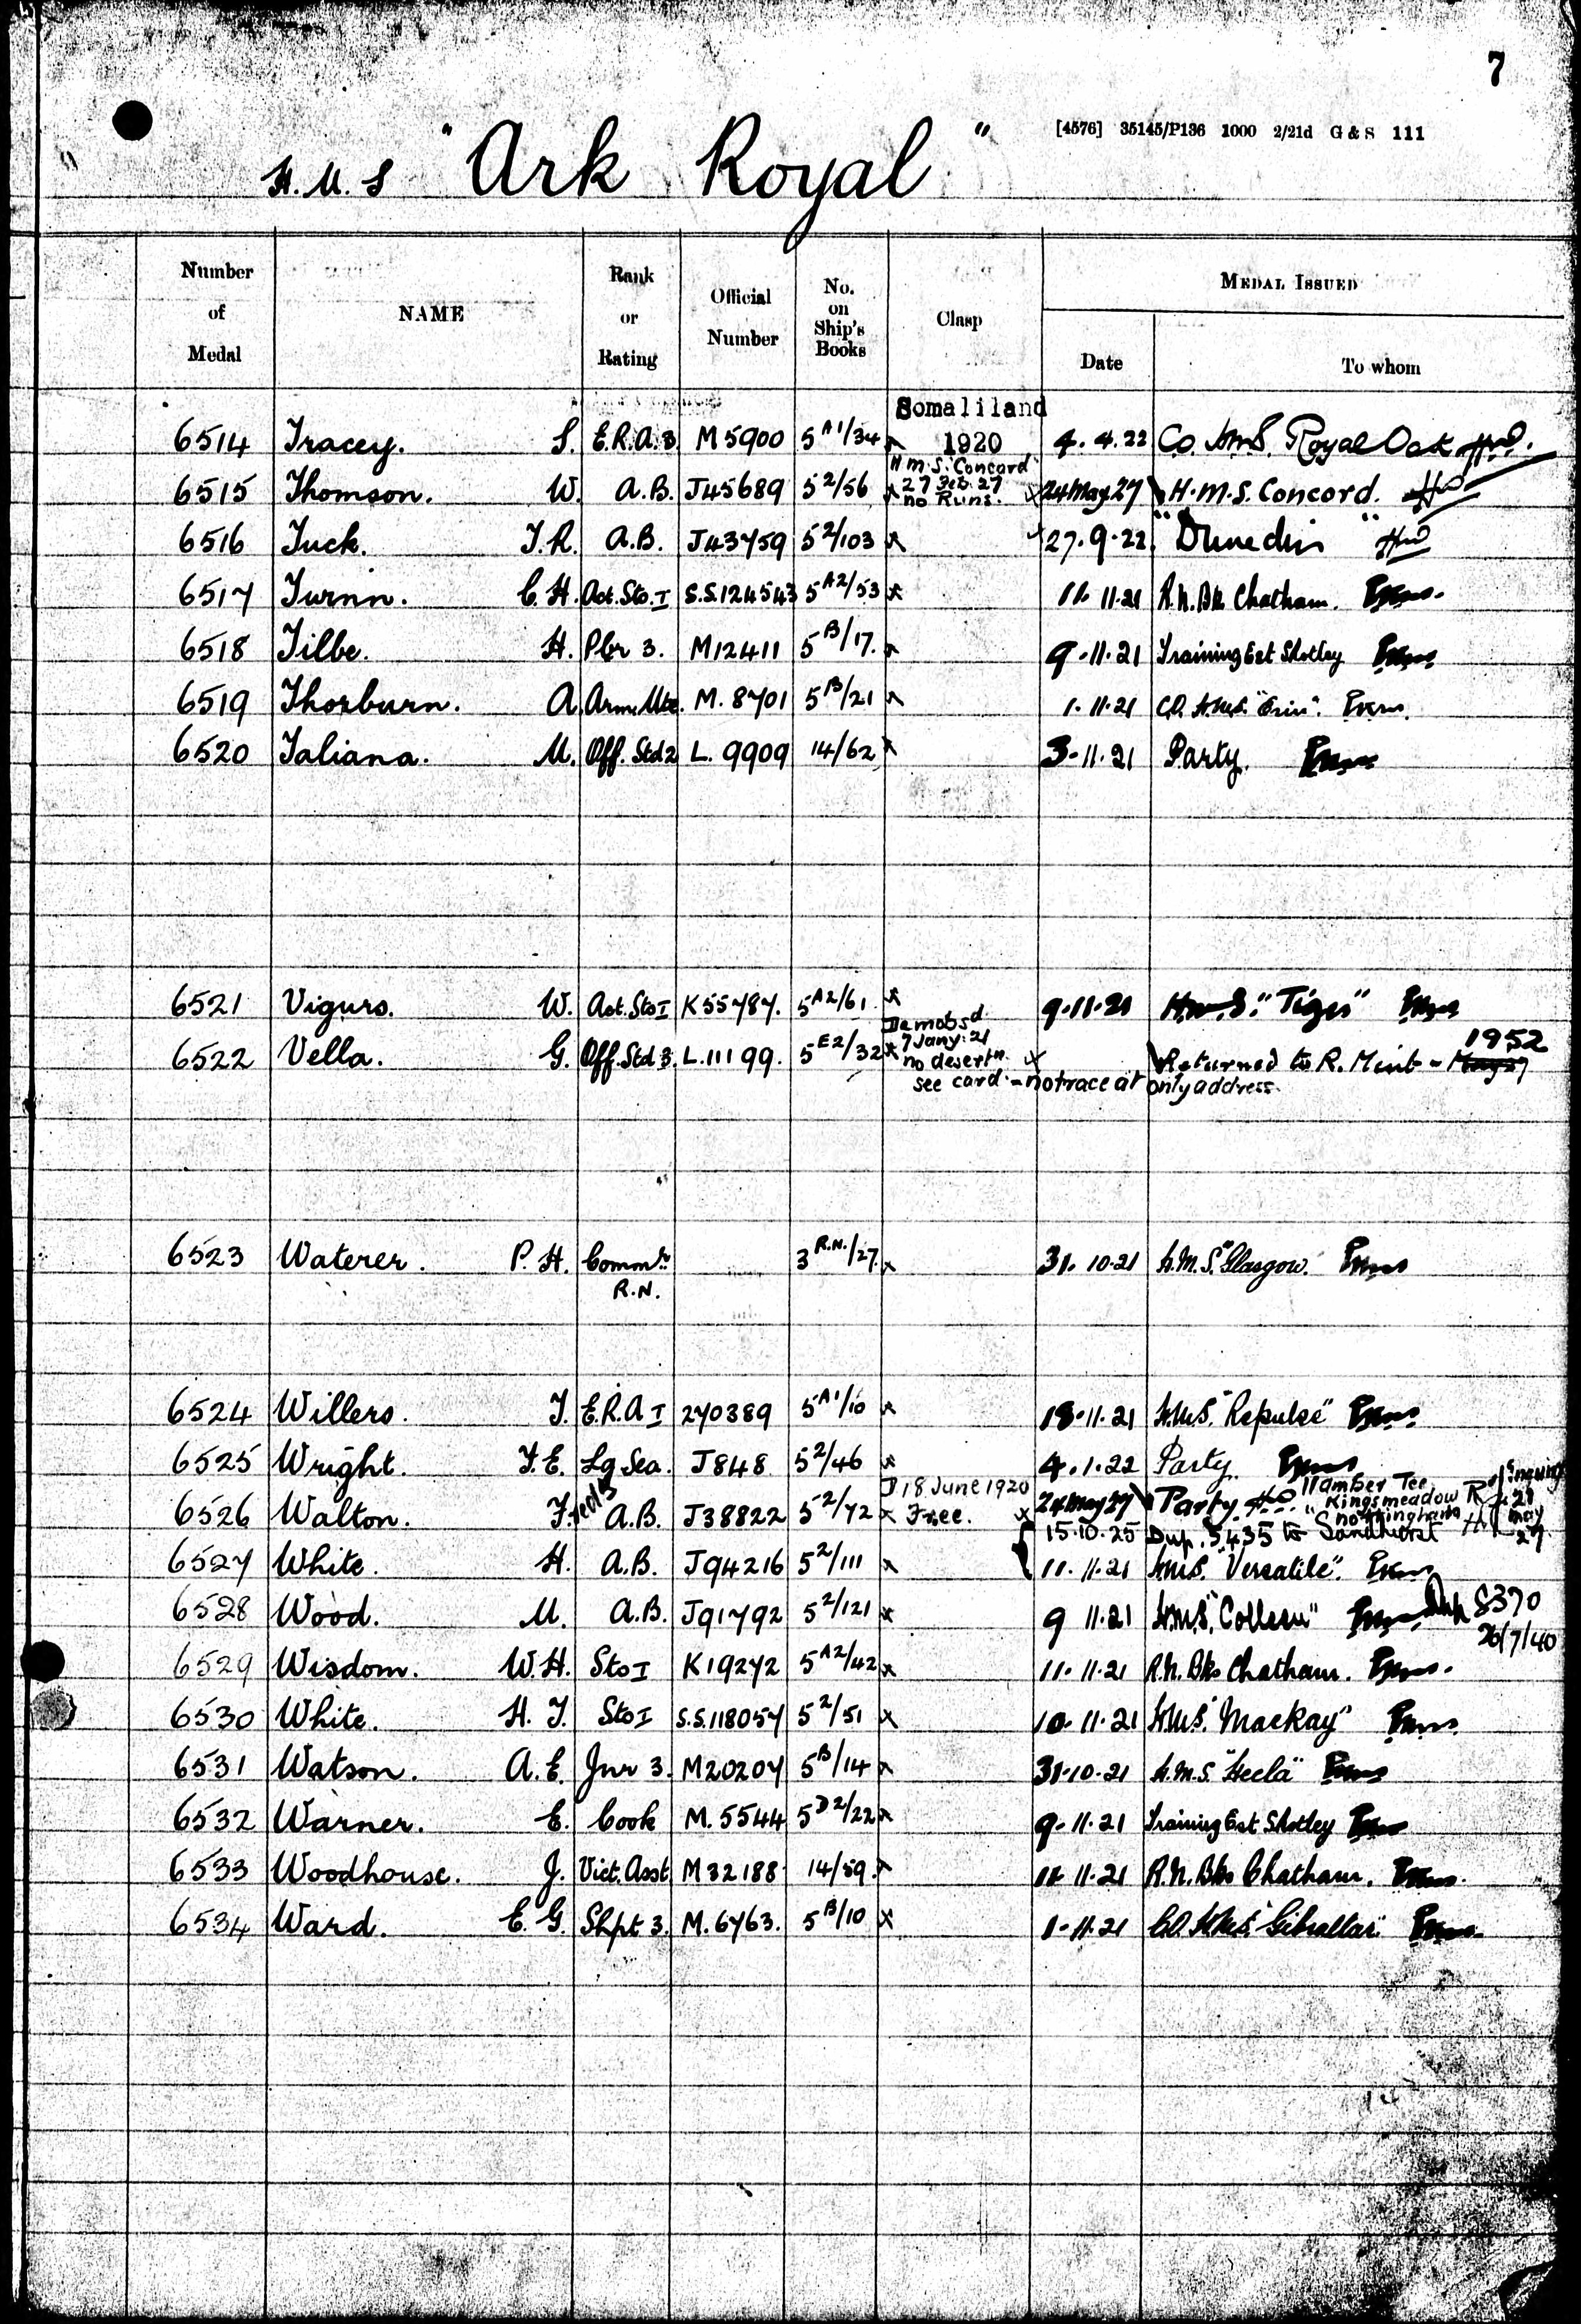 7
[4576] 35145/P136 1000 2/21d G & S 111
H.M.S "Ark Royal"
Number of Medal NAME Rank or Rating Official Number No. on Ship's Books Clasp MEDAL ISSUED
Date To whom
Somaliland
6514 Tracey. S. E.R.A.3 M5900 5 A1/34 x 1920 4.4.22 CO. HMS. Royal Oak
H.M.S. "Concord"
6515 Thomson. W. A.B. J45689 5 2/56 x 27 Feb. 27 x 24 May 27 H.M.S. Concord.
no Runs.
6516 Tuck. T.R. A.B. J43759 5 2/103 x 27.9.22 "Dunedin"
6517 Turnn. C.H. Act.Sto.I S.S.124543 5 A2/53 x 11.11.21 R.N.Bks Chatham.
6518 Tilbe. H. Pbr 3. M12411 5 B/17. x 9.11.21 Training Est Shotley
6519 Thorburn. A. Arm. Mte. M.8701 5 B/21 x 1.11.21 C.O. H.M.S. "Erin".
6520 Taliana. M. Off. Std 2 L.9909 14/62 x 3-11.21 Party.
6521 Vigurs. W. Act.Sto I K55787. 5 A2/61. x 9.11.21 H.M.S. "Tiger"
Demobsd
7 Jany: 21 1952
6522 Vella. G. Off.Std.3. L.11199. 5 E2/32 x no desertn. x Returned to R. Mint - May 27
see card. - no trace at only address.
6523 Waterer. P.H. Commdr 3 R.N./27. x 31.10.21 H.M.S. "Glasgow."
R.N.
6524 Willers. T. E.R.A I 270389 5 A1/10 x 18.11.21 H.M.S. "Repulse"
6525 Wright. F.E. Lg Sea. J848 5 2/46 x 4.1.22 Party.
D 18 June 1920 11 Amber Tce
6526 Walton. F. A.B. J38822 5 2/72 x Free. x 24 May 27 Party. Kingsmeadow
Nottingham
15.10.25 Dup. 5435 to Sandhurst
6527 White. H. A.B. J94216 5 2/111 x 11.11.21 H.M.S. "Versatile".
6528 Wood. M. A.B. J91792 5 2/121 x 9 11.21 H.M.S. "Colleen" Dup 8370
26/7/40
6529 Wisdom. W.H. Sto I K19272 5 A2/42 x 11.11.21 R.N. Bks Chatham.
6530 White. H.T. Sto I S.S.118057 5 2/51 x 10.11.21 H.M.S. "Mackay"
6531 Watson. A.E. Jnr 3. M20207 5 B/14 x 31.10.21 H.M.S. "Hecla"
6532 Warner. E. Cook M.5544 5 D2/22 x 9.11.21 Training Est Shotley
6533 Woodhouse. J. Vict. Asst M32188 14/59. x 11 11.21 R.N. Bks Chatham.
6534 Ward. E.G. Shpt 3. M.6763. 5 B/10 x 1-11.21 C.O. H.M.S. "Gibraltar"